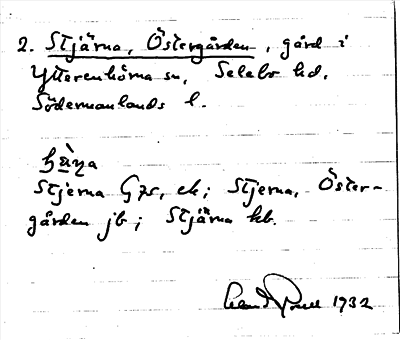 2. Stjärna, Östergården, gård i
Ytterenhörna sn, Selebo hd,
Södermanlands l.
Stjerna Gps, ek; Stjerna, Öster-
gården jb; Stjärna hb.
1932